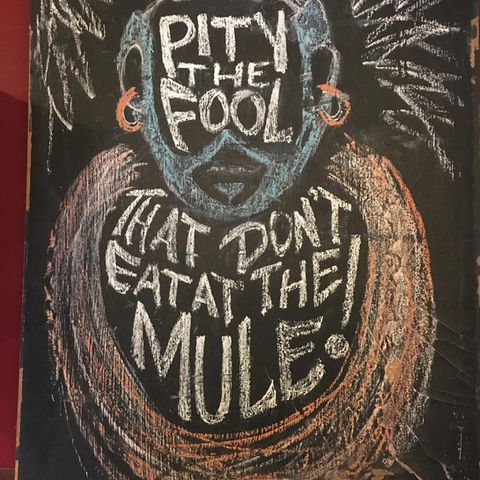 PITY
THE
FOOL
THAT DON'T
EAT AT THE!
MULE.